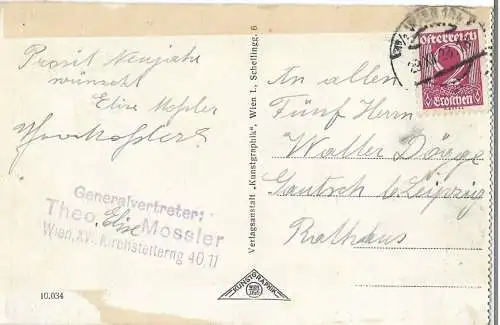 Prosit Neujahr
wünscht
Elise Mossler
Generalvertreter:
Theo. Elise Mossler
Wien, XV. Kirchstetterng 40/11
10.034
Verlagsanstalt „Kunstgraphik", Wien I., Schellingg. 6
KUNSTGRAPHIK
WIEN
Österreich
9
Groschen
An allen
Fünf Herrn
Walter
Gautsch b. Leipzig
Rathaus